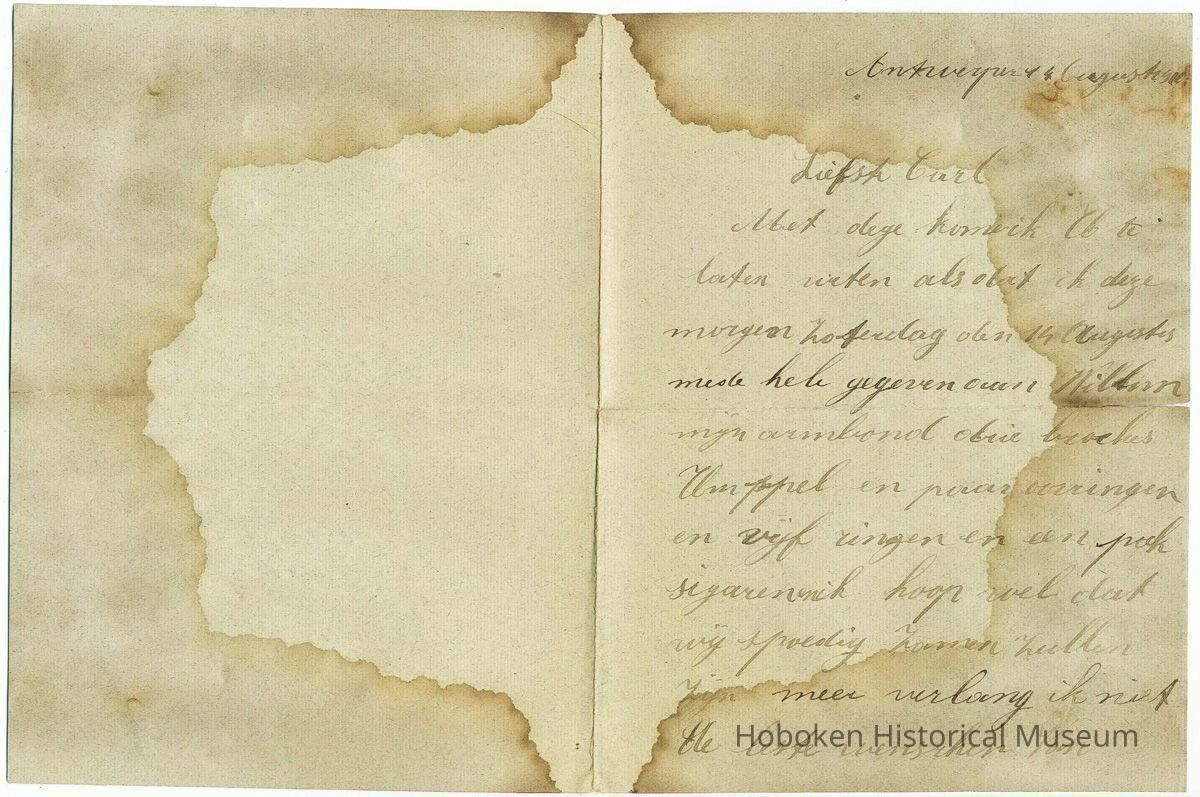 Antwerpen 14 Augustus
Liefste Carl
Met deze kome ik U te
laten weten als dat ik deze
morgen Zaterdag den 14 Augustus
mede heb gegeven aan Willem
mijn armband drie broches
en paar oorringen
en vijf ringen en een pak
sigaren ik hoop wel dat
wij spoedig zamen zullen
zijn meer verlang ik niet
De beste wenschen van
Hoboken Historical Museum